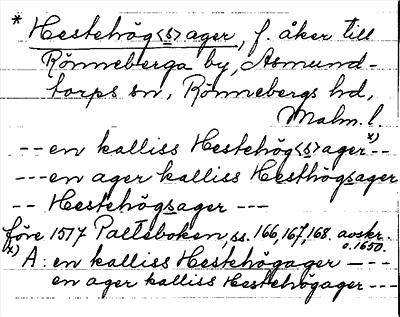 * Hestehög<s>ager, f. åker till
Rönneberga by, Asmund-
torps sn, Rönnebergs hd,
Malm. l.
-- en kalliss Hestehög<s>ager x) --
--- en ager kalliss Hesthögsager
-- Hestehögsager ---
före 1517 Palteboken, ss. 166, 167, 168. avskr. o. 1650.
x) A: en kalliss Hestehögager ---
en ager kalliss Hestehögager ---